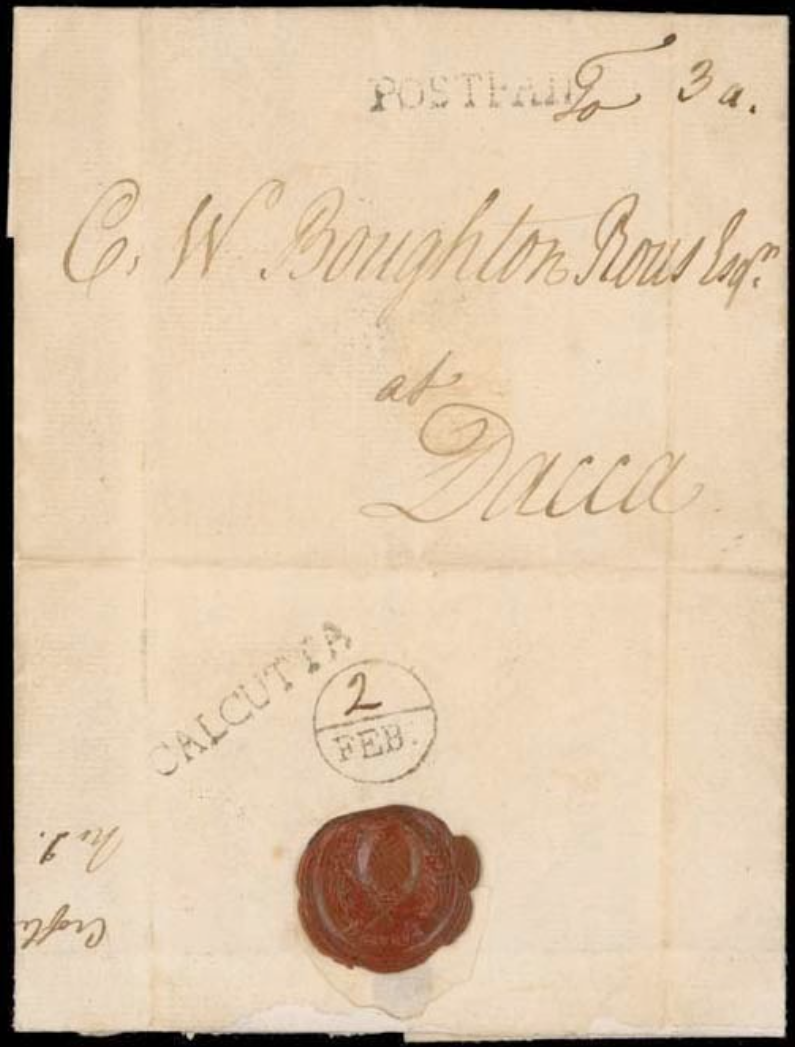 POSTPAID To 3 a.
C. W. Boughton Rous Esqr.
at
Dacca
CALCUTTA
2
FEB.